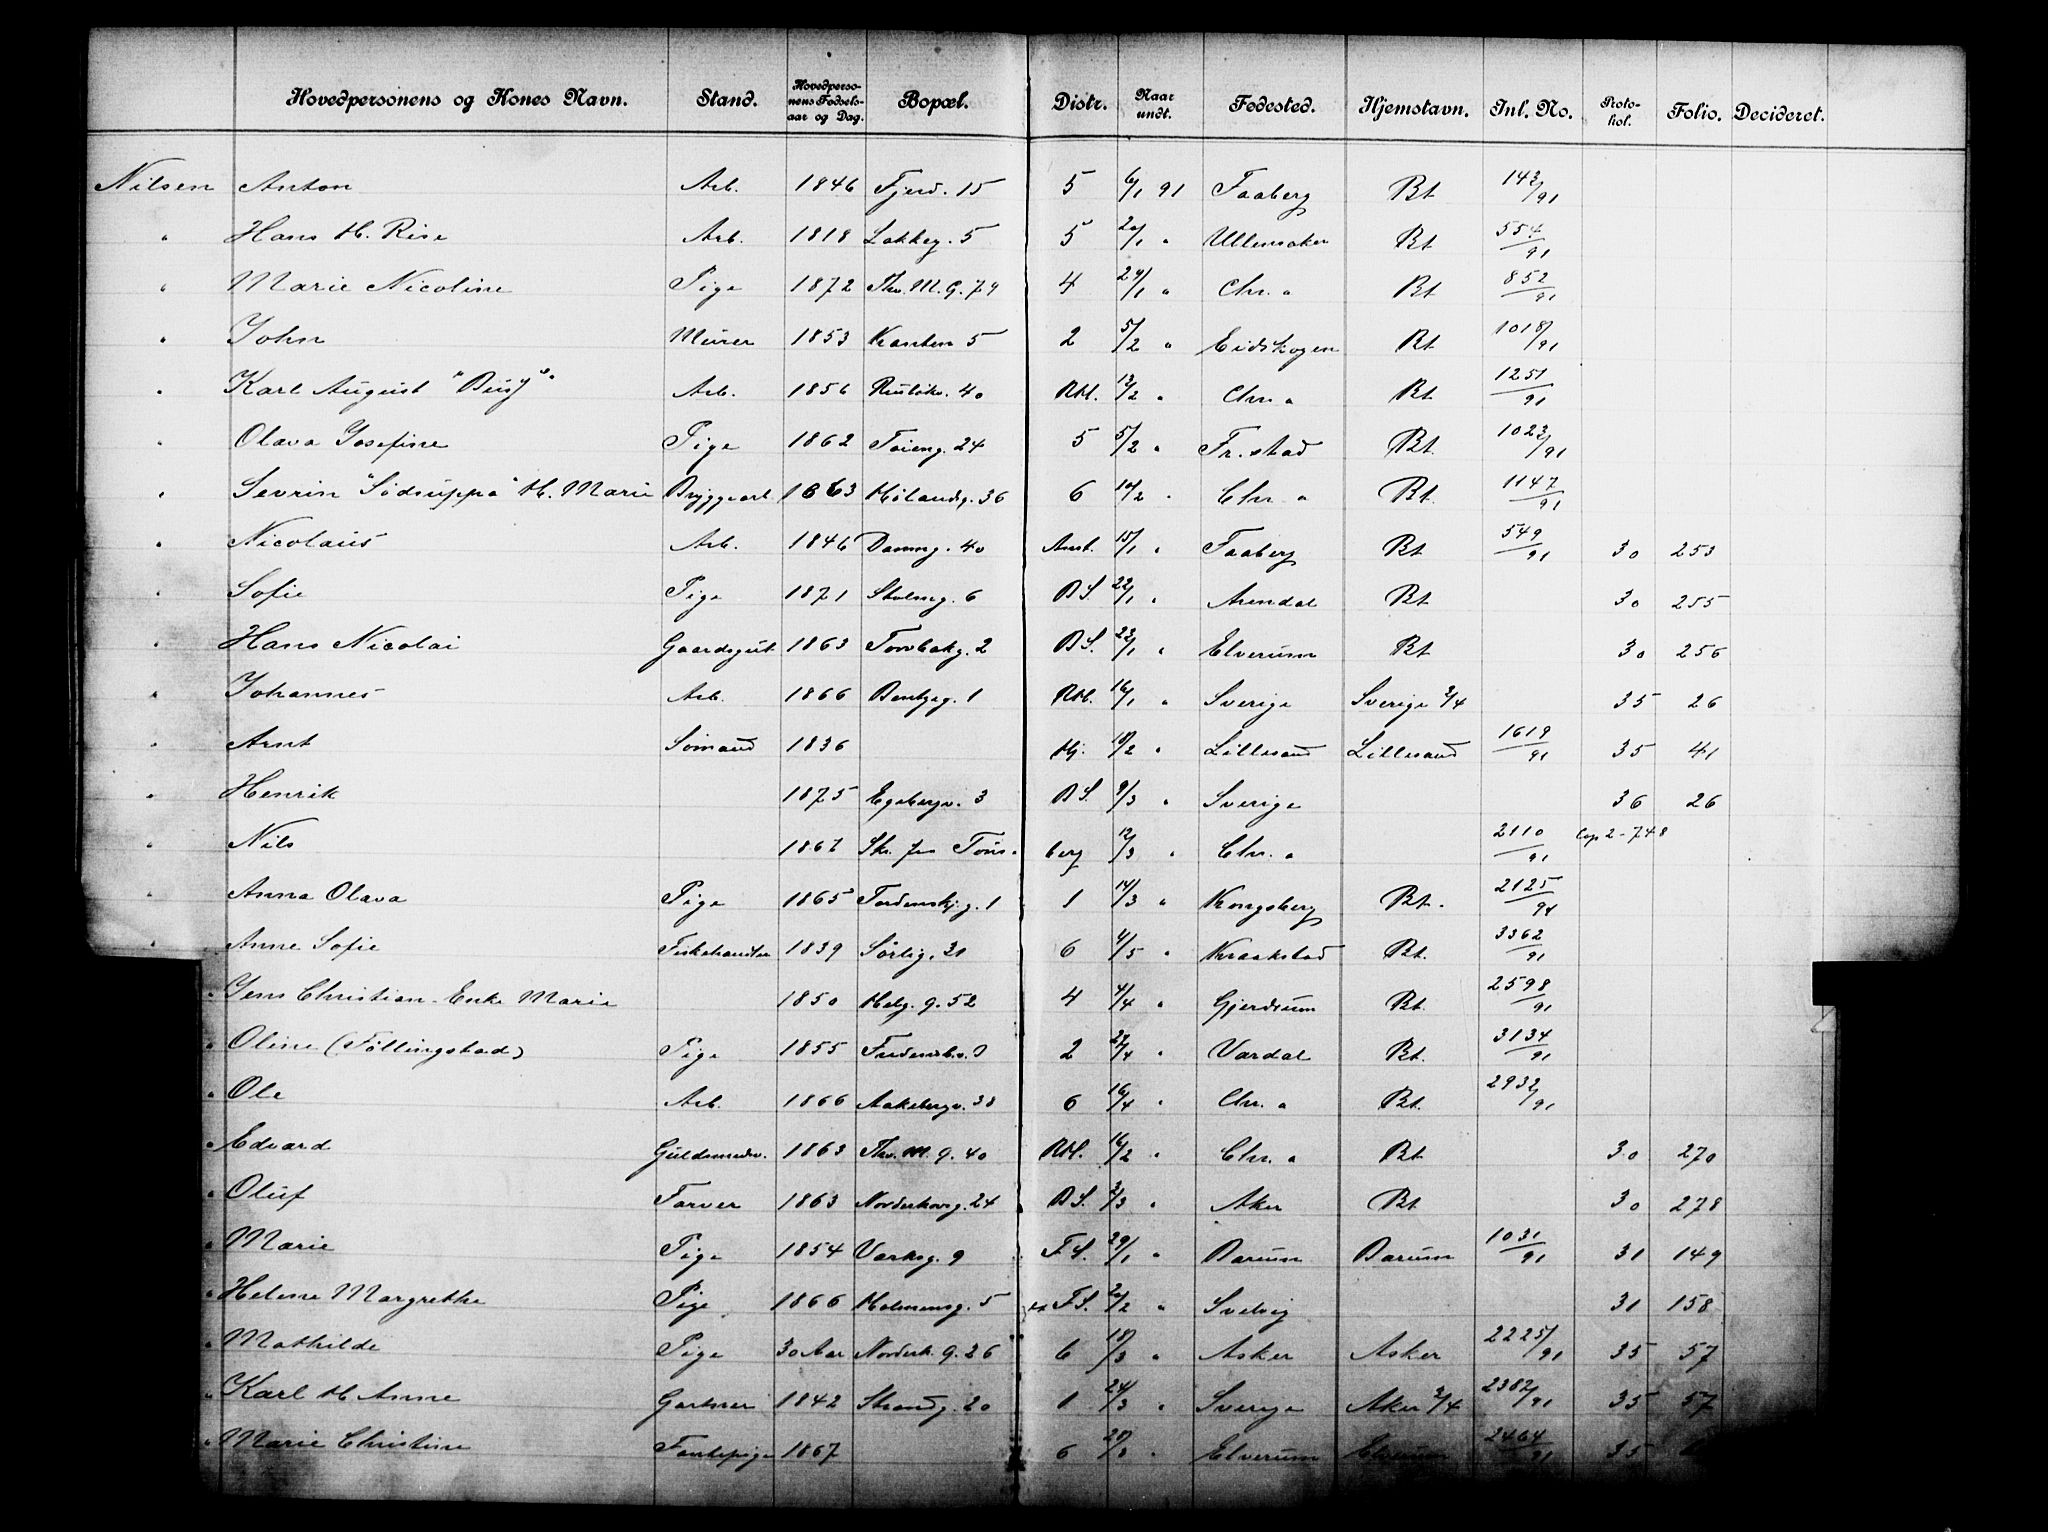 Hovedpersonens og Kones Navn. Stand. Hovedpersonens Fødselsaar og Dag. Bopæl. Distr. Naar undt. Fødested. Hjemstavn. Inl. No. Protokol. Folio. Decideret.
Nilsen Anton Arb. 1846 Fjerd. 15 5 6/1 91 Faaberg Bt 143/91
" Hans H. Rise Arb. 1818 Lakkeg. 5 5 20/1 " Ullensaker Bt 554/91
" Marie Nicoline Pige 1872 Thv. M. G. 74 4 24/1 " Chr. a Bt 852/91
" John Murer 1853 Kanten 5 2 5/2 " Eidskogen Bt 1018/91
" Karl August "Busj" Arb. 1856 Rusløkv. 40 RM. 12/2 " Chr. a Bt 1251/91
" Olava Josefine Pige 1862 Tøieng. 24 5 5/2 " Fr.stad Bt. 1023/91
" Sevrin "Sødsuppa" H. Marie Bryggearb 1863 Hølandg. 36 6 10/2 " Chr. a Bt. 1147/91
" Nicolaus Arb. 1846 Damng. 40 Anst. 15/1 " Faaberg Bt 549/91 30 253
" Sofie Pige 1871 Stolmg. 6 BS. 22/1 " Arendal Bt 30 255
" Hans Nicolai Gaardsgut 1863 Torvbakg. 2 BS. 22/1 " Elverum Bt 30 256
" Johannes Arb. 1866 Bentseg. 1 RM. 16/1 " Sverige Sverige 3/4 35 26
" Arnt Sømand 1836 Hj. 18/2 " Lillesand Lillesand 1619/91 35 41
" Henrik 1875 Egebergv. 3 BS. 9/3 " Sverige 36 26
" Nils 1867 Skr. fra Tønsberg 12/3 " Chr. a 2110/91 Cop 2-748
" Anna Olava Pige 1865 Tordenskj.g. 1 1 14/3 " Kongsberg Bt. 2125/91
" Anne Sofie Fiskehandler 1839 Sørlig. 31 6 4/5 " Kraakstad Bt. 3362/91
" Jens Christian - Enke Marie 1850 Helg. g. 52 4 4/4 " Gjerdrum Bt. 2598/91
" Oline (Föllingstad) Pige 1855 Fredensb.v. 9 2 27/4 " Vardal Bt. 3134/91
" Ole Arb. 1866 Aakebergv. 38 6 16/4 " Chr. a Bt. 2932/91
" Edvard Guldsmedsv. 1863 Thv. M. g. 40 RM. 16/2 " Chr. a Bt 30 270
" Oluf Farver 1863 Norderhovg. 24 BS. 3/3 " Aker Bt 30 278
" Marie Pige 1854 Værksg. 9 F.S. 29/1 " Bærum Bærum 1031/91 31 149
" Helene Margrethe Pige 1866 Holmensg. 5 F.S. 20/2 " Svelvig 31 158
" Mathilde Pige 30 Aar Norderh. g. 26 6 18/3 " Asker Asker 2225/91 35 57
" Karl H. Anne Gartner 1842 Strandg. 20 1 24/3 " Sverige Aker 3/4 2382/91 35 57
" Marie Christine Tjentepige 1867 6 20/3 " Elverum Elverum 2464/91 35